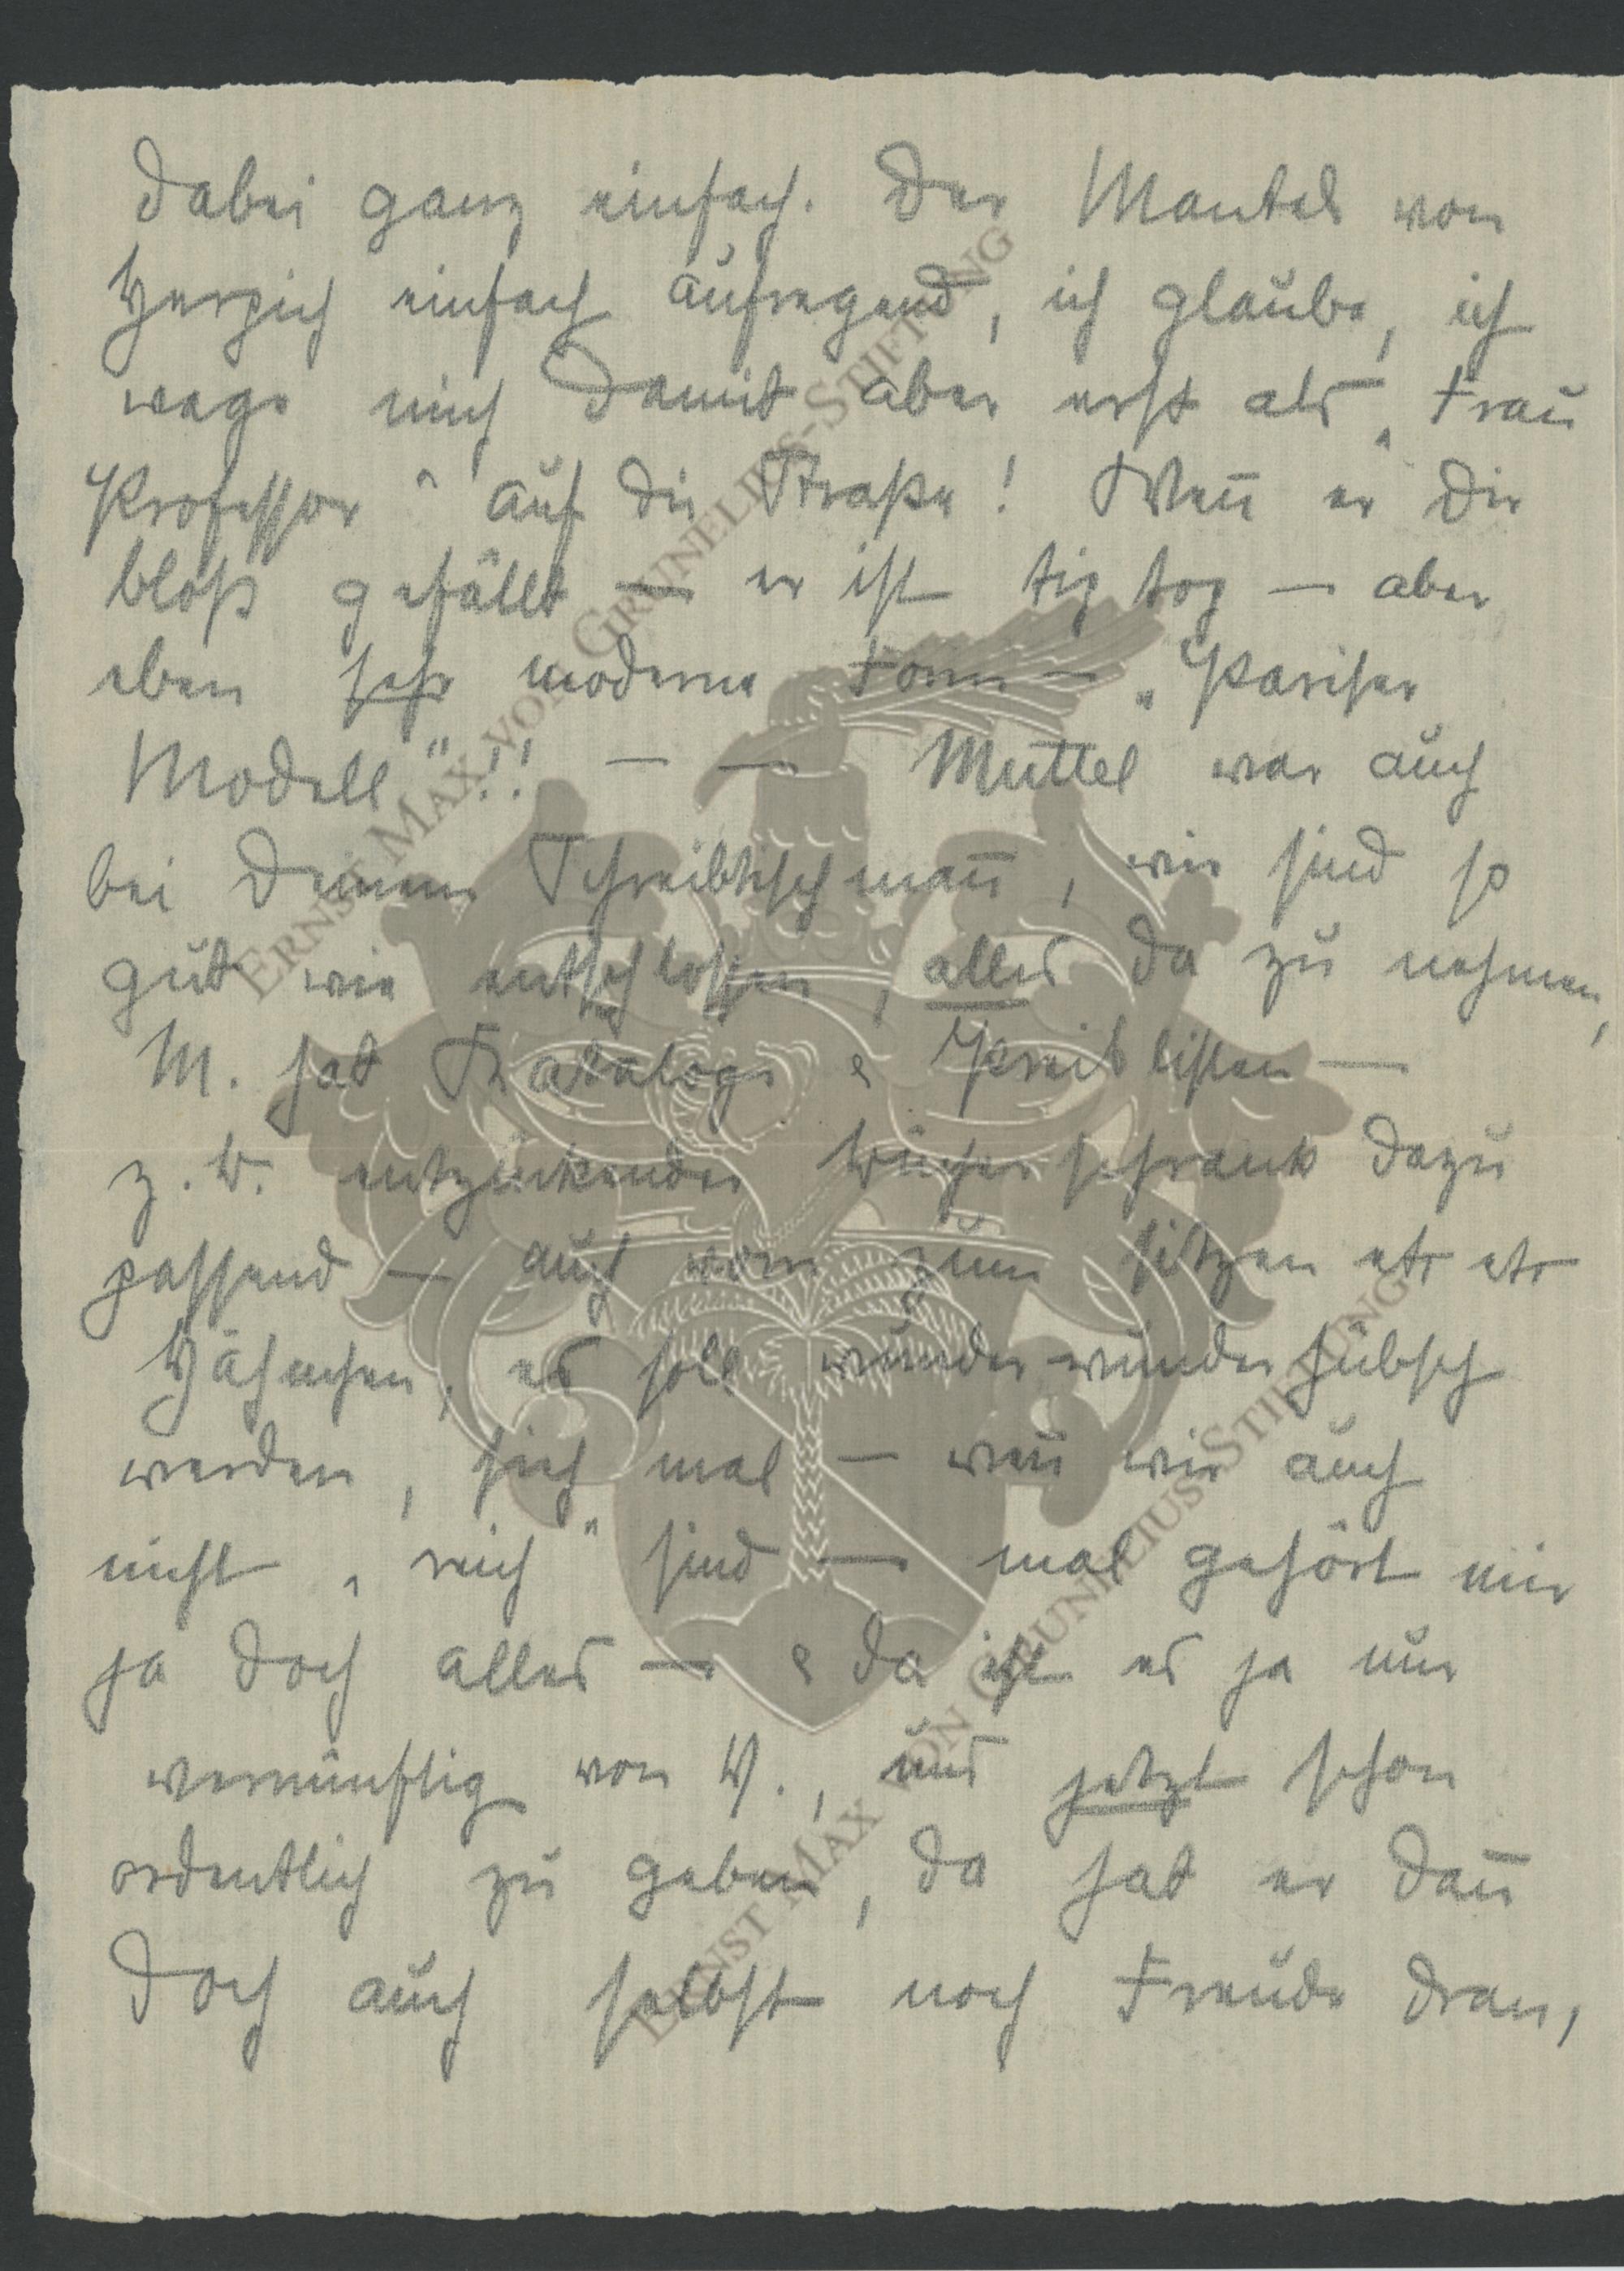 dabei ganz einfach. Der Mantel von
Herpich einfach aufregend, ich glaube, ich
wage mich damit aber erst als „Frau
Professor“ auf die Straße! Wen̄ er Dir
bloß gefällt — er ist tip top — aber
eben sehr moderne Form — „Pariser
Modell“!! — — Muttel war auch
bei Deinem Schreibtischman̄, wir sind so
gut wie entschlossen, alles da zu nehmen,
M. hat Kataloge & Preislisten —
z. B. entzückender Bücherschrank dazu
passend — auch vorn zum sitzen etc etc
Hähnchen, es soll wunderwunderhübsch
werden, sieh mal — wen̄ wir auch
nicht „reich“ sind — mal gehört mir
ja doch alles — & da ist es ja nur
vernünftig von V., uns jetzt schon
ordentlich zu geben, da hat er dan̄
doch auch selbst noch Freude dran,
ERNST MAX VON GRUNELIUS-STIFTUNG
ERNST MAX VON GRUNELIUS-STIFTUNG